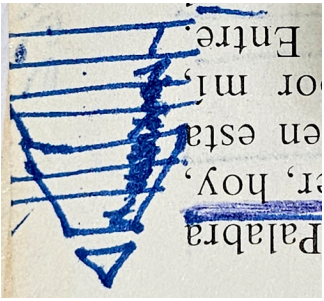 Palabra
hoy,
en esta
mi,
Entre.